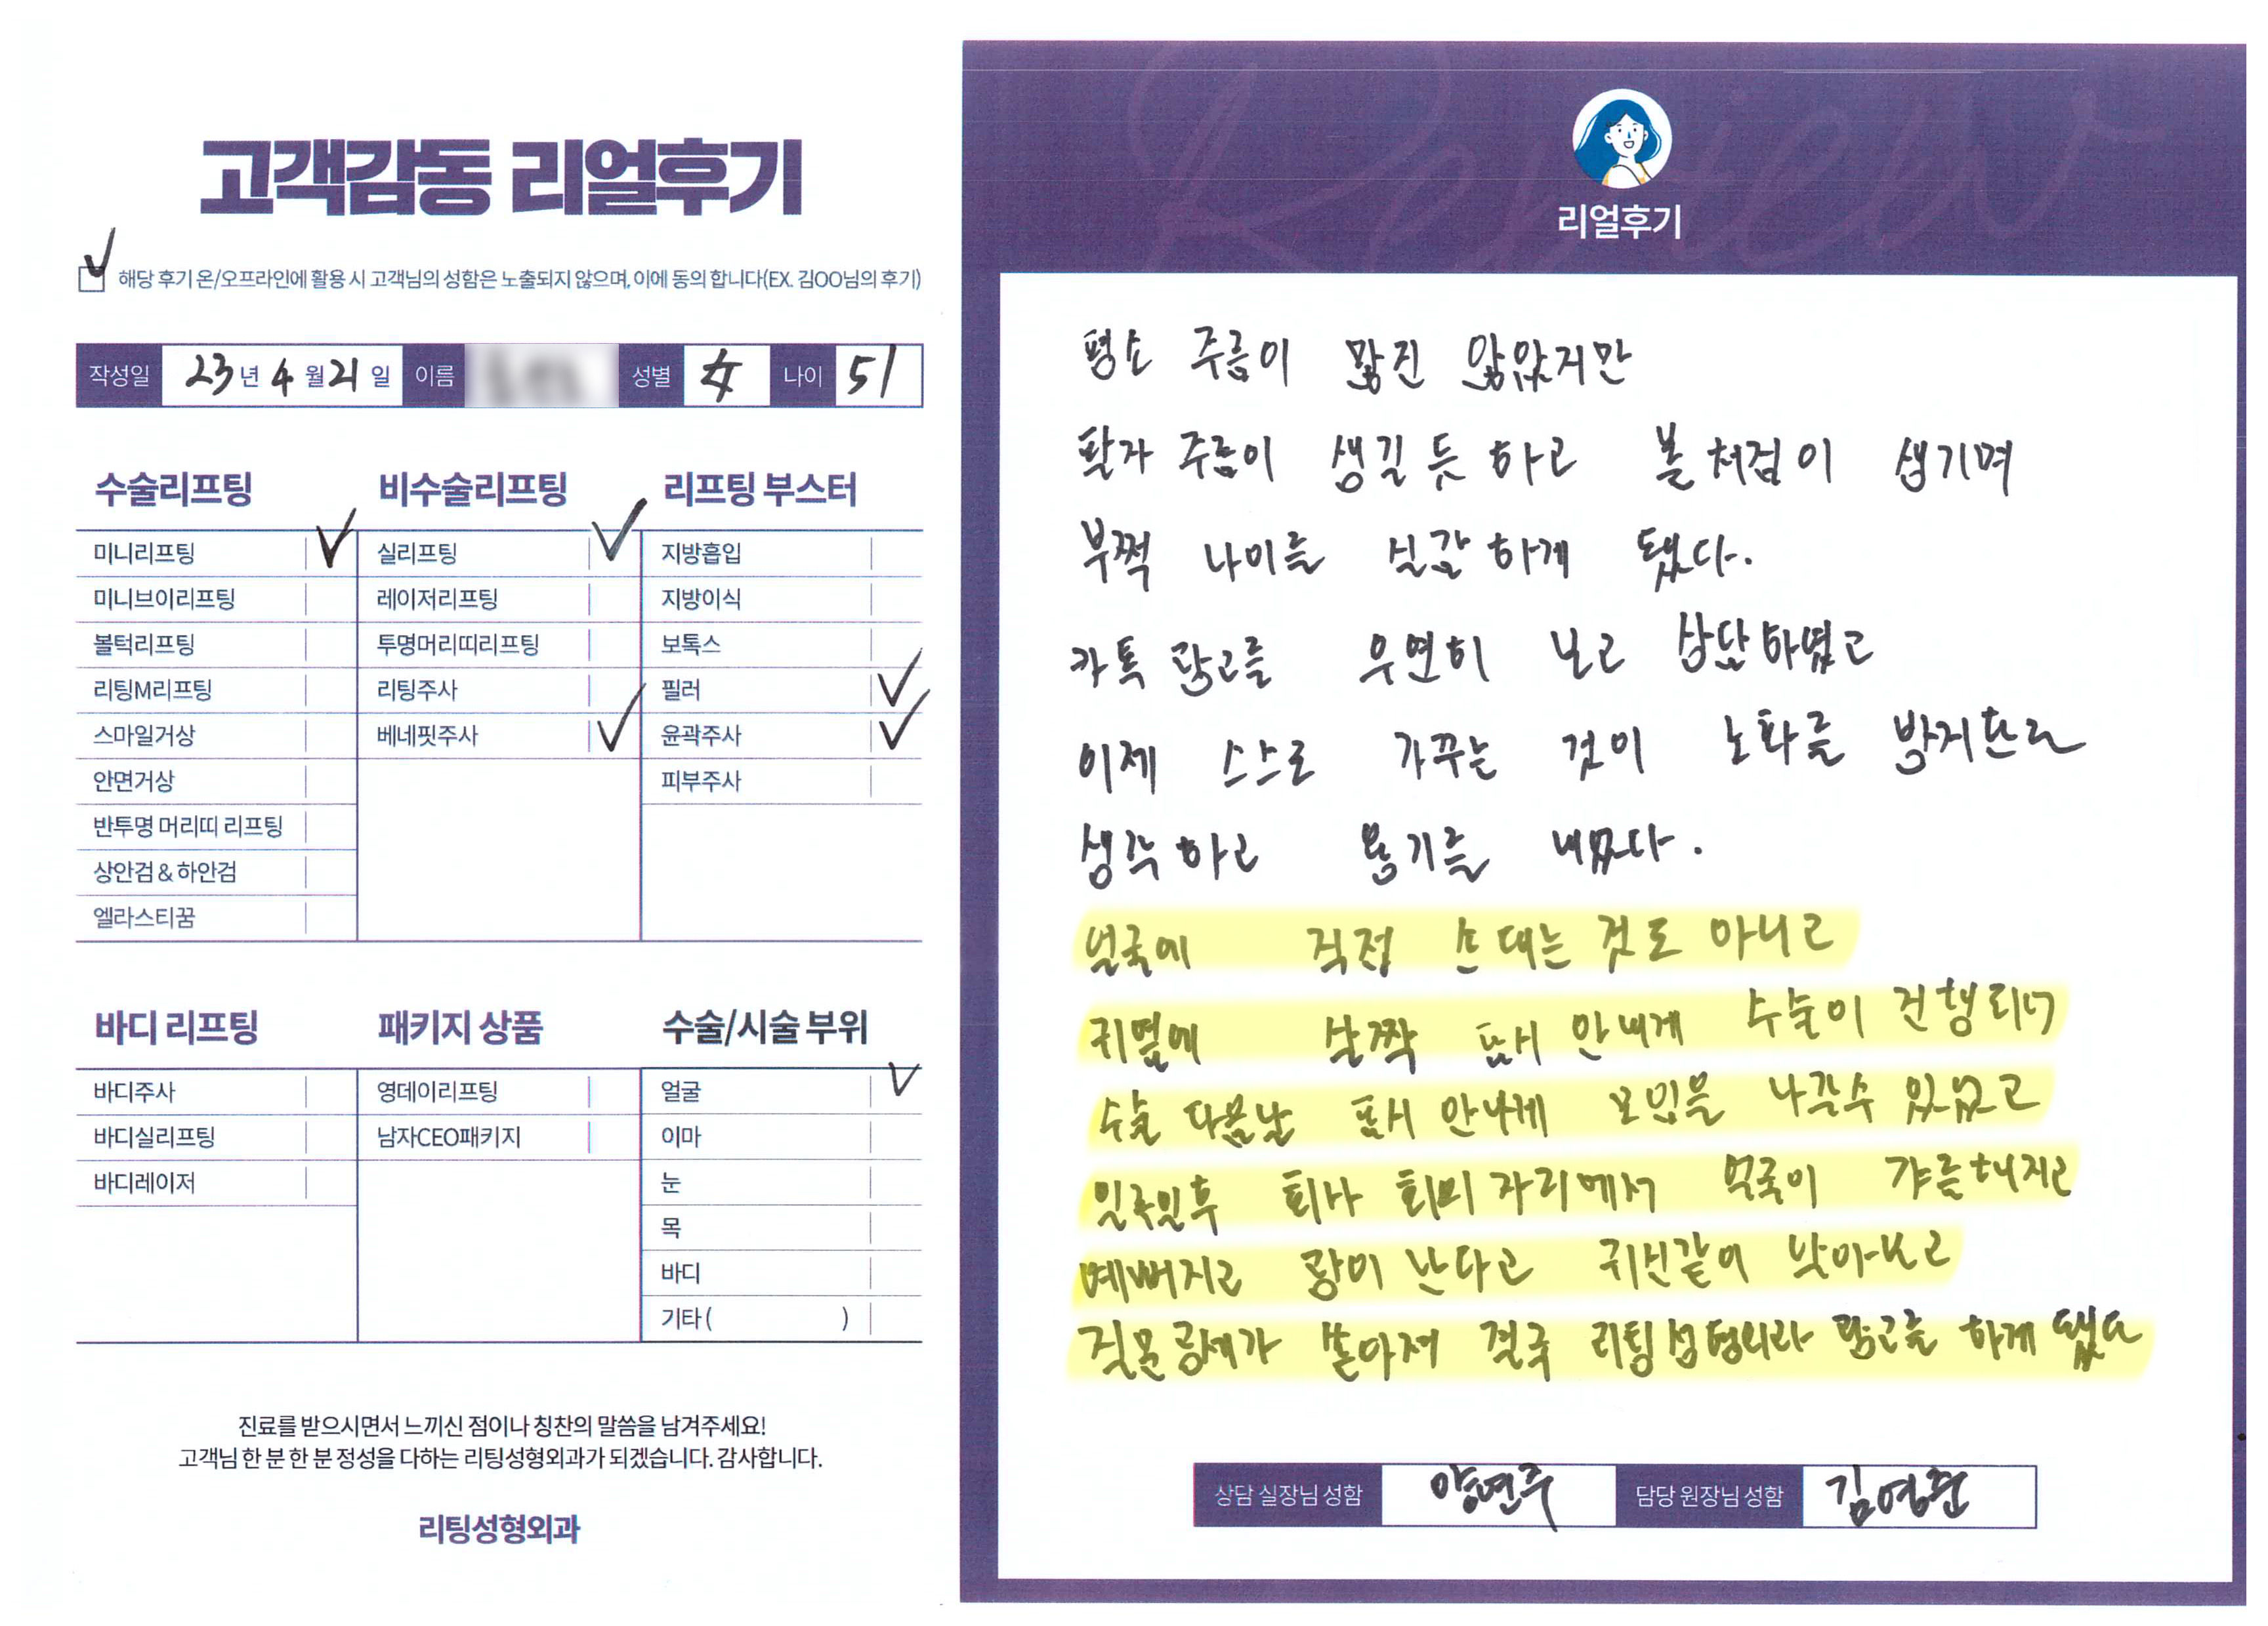 고객감동 리얼후기
해당 후기 온/오프라인에 활용 시 고객님의 성함은 노출되지 않으며, 이에 동의 합니다(EX. 김OO님의 후기)
작성일 23년 4월 21일 이름 성별 女 나이 51
수술리프팅
미니리프팅
미니브이리프팅
볼턱리프팅
리팅M리프팅
스마일거상
안면거상
반투명 머리띠 리프팅
상안검 & 하안검
엘라스티꿈
비수술리프팅
실리프팅
레이저리프팅
투명머리띠리프팅
리팅주사
베네핏주사
리프팅 부스터
지방흡입
지방이식
보톡스
필러
윤곽주사
피부주사
바디 리프팅
바디주사
바디실리프팅
바디레이저
패키지 상품
영데이리프팅
남자CEO패키지
수술/시술 부위
얼굴
이마
눈
목
바디
기타 ( )
진료를 받으시면서 느끼신 점이나 칭찬의 말씀을 남겨주세요!
고객님 한 분 한 분 정성을 다하는 리팅성형외과가 되겠습니다. 감사합니다.
리팅성형외과
Review
리얼후기
평소 주름이 많진 않았지만
팔자 주름이 생길 듯 하고 볼 처짐이 생기며
부쩍 나이를 실감 하게 됐다.
카톡 광고를 우연히 보고 상담하였고
이제 스스로 가꾸는 것이 노화를 방지한다
생각하고 용기를 내었다.
얼굴에 직접 손대는 것도 아니고
귀옆에 살짝 표시 안나게 수술이 진행되니
수술 다음날 표시 안나게 모임을 나갈수 있었고
일주일후 회사 회의 자리에서 얼굴이 갸름해지고
예뻐지고 광이 난다고 귀신같이 알아보고
질문공세가 쏟아져 결국 리팅성형외과 광고를 하게 됐다
상담 실장님 성함 양연주 담당 원장님 성함 김영준